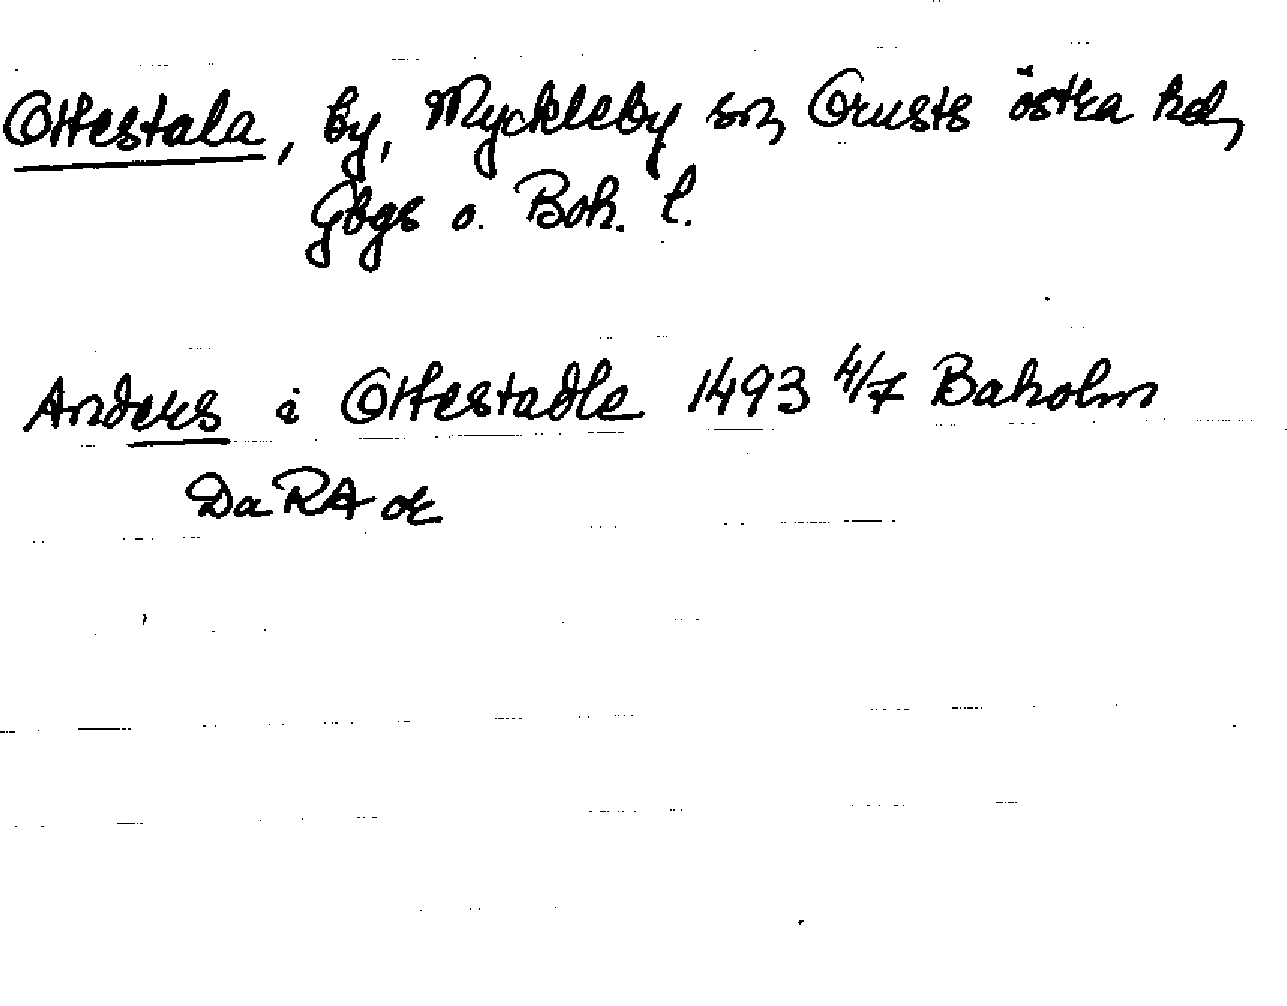 Ottestala, by, Myckleby sn, Orusts östra hd,
Gbgs o. Boh. l.
Anders i Ottestadle 1493 4/7 Baholm
DaRA or